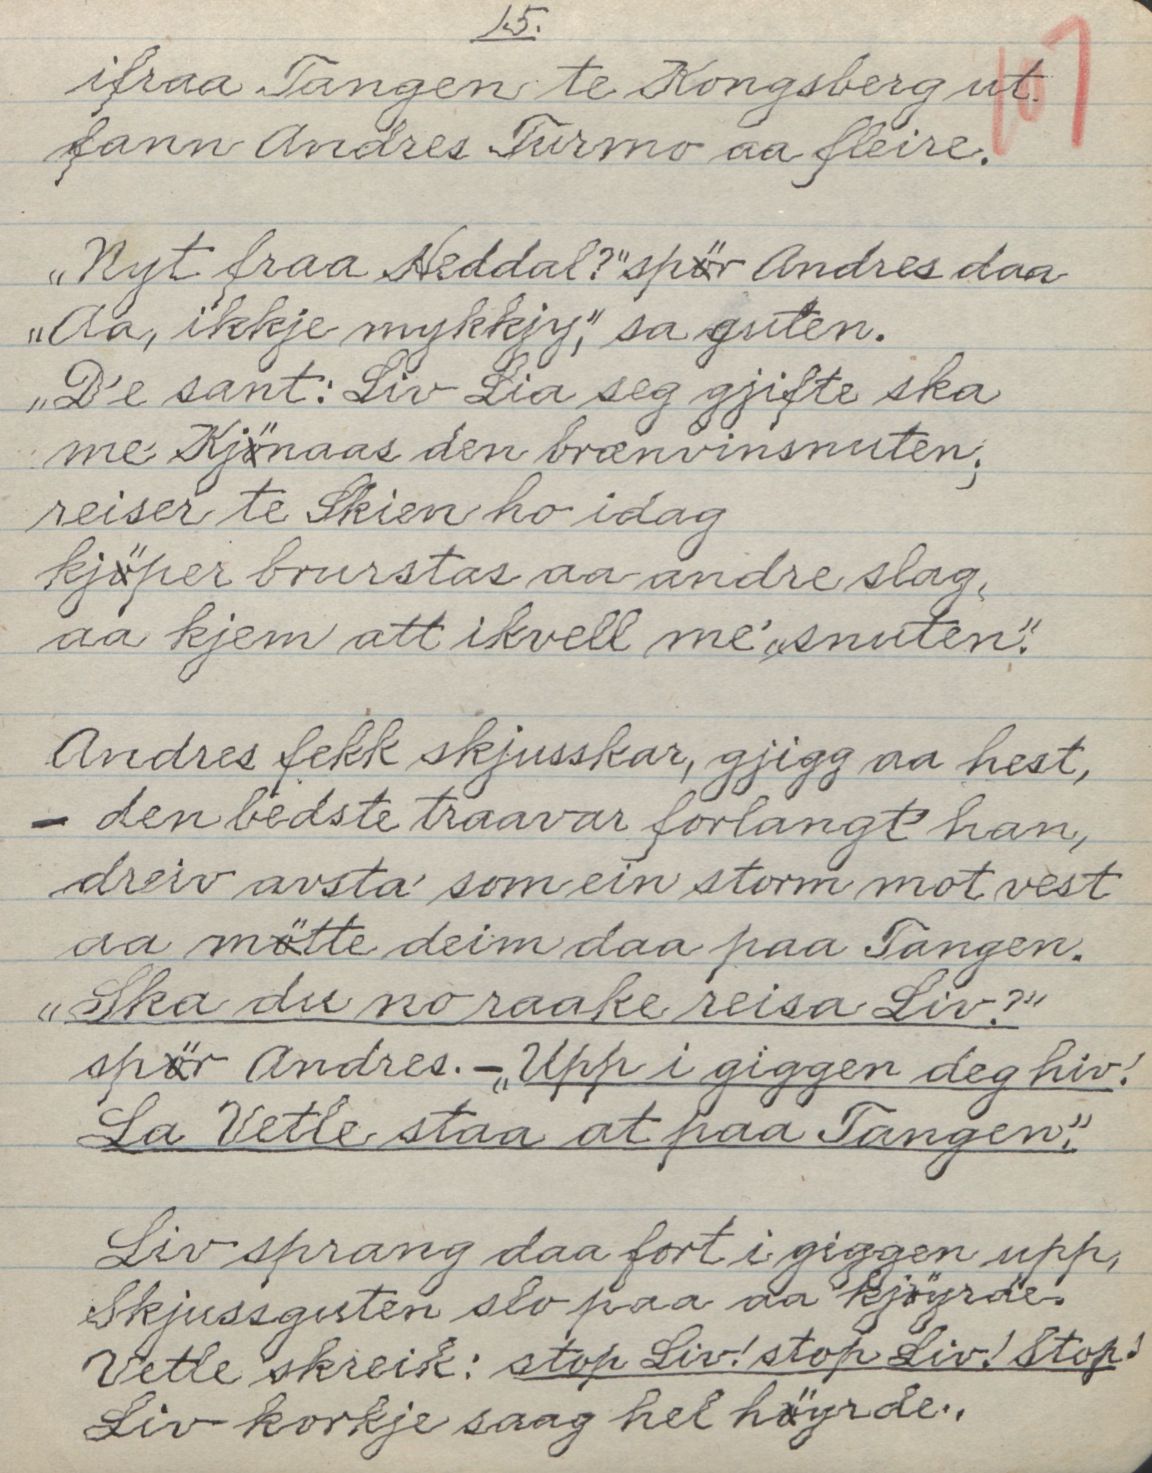 15.
107
ifraa Tangen te Kongsberg ut
fann Andres Turmo aa fleire.
„Nyt fraa Heddal?" spör Andres daa
„Aa, ikkje mykkjy," sa guten.
„D'e sant: Liv Lia seg gjifte ska
me Kjönaas den brænvinsnuten;
reiser te Skien ho idag
kjöper brurstas aa andre slag,
aa kjem att ikvell me' „snuten".
Andres fekk skjusskar, gjigg aa hest,
– den bedste traavar forlangt' han,
dreiv avsta' som ein storm mot vest
aa mötte deim daa paa Tangen.
„Ska du no raake reisa Liv?"
spör Andres. – „Upp i giggen deg hiv!
La Vetle staa at paa Tangen".
Liv sprang daa fort i giggen upp,
Skjussguten slo paa aa kjöyrde.
Vetle skreik: stop Liv! stop Liv! Stop!
Liv korkje saag hel höyrde.